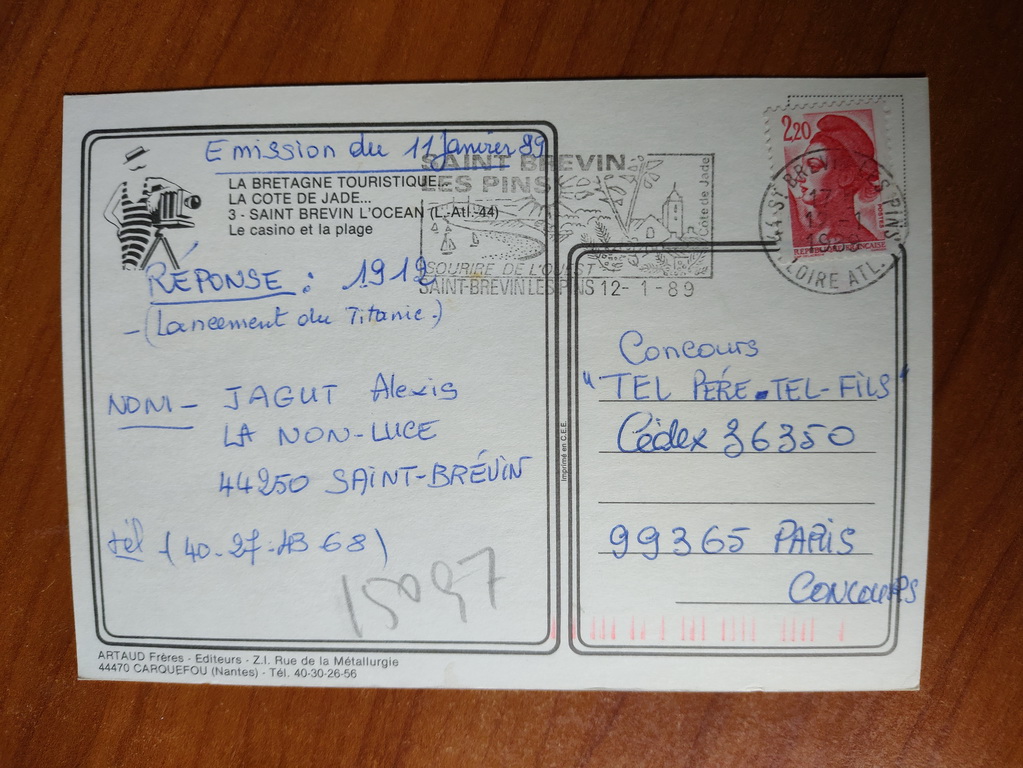 Emission du 11 Janvier 89
LA BRETAGNE TOURISTIQUE...
LA COTE DE JADE...
3 - SAINT BREVIN L'OCEAN (L.-Atl.-44)
Le casino et la plage
RÉPONSE : 1912
-(Lancement du Titanic.)
NOM - JAGUT Alexis
LA NON-LUCE
44250 SAINT-BRÉVIN
tél (40-27-13-68)
15097
ARTAUD Frères - Editeurs - Z.I. Rue de la Métallurgie
44470 CARQUEFOU (Nantes) - Tél. 40-30-26-56
Imprimé en C.E.E.
SAINT BREVIN
LES PINS
Côte de Jade
SOURIRE DE L'OUEST
SAINT-BREVIN LES PINS 12-1-89
2,20
REPUBLIQUE FRANCAISE
44 ST BREVIN LES PINS
LOIRE ATL.
Concours
"TEL PÉRE. TEL-FILS"
Cédex 36350
99365 PARIS
CONCOURS